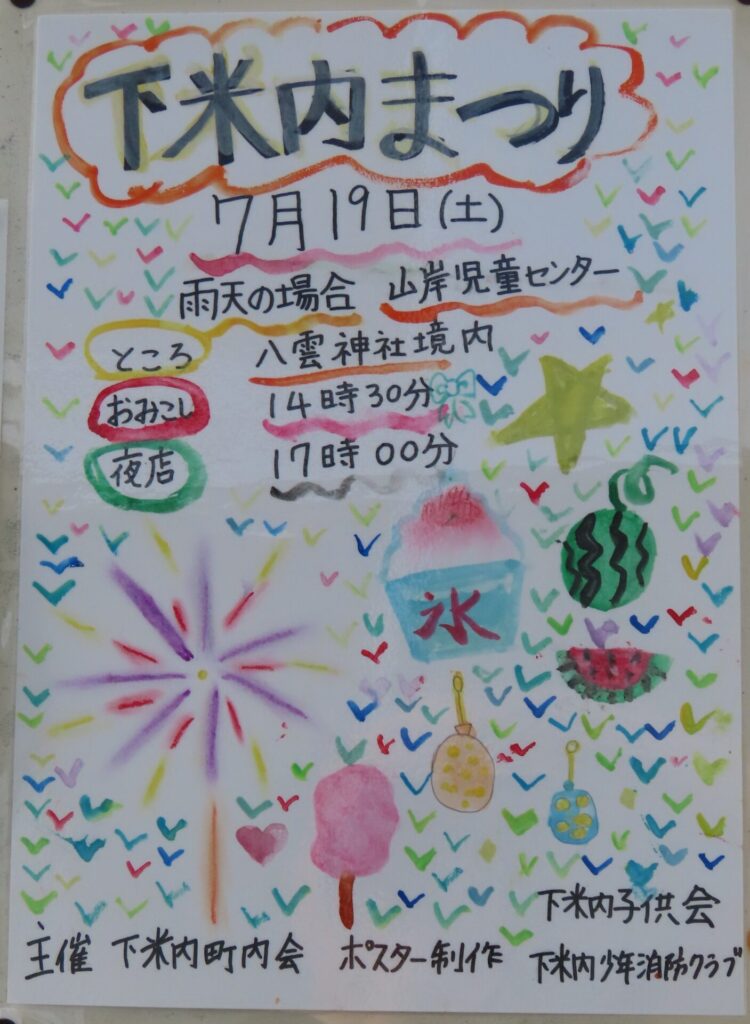 下米内まつり
7月19日(土)
雨天の場合 山岸児童センター
ところ 八雲神社境内
おみこし 14時30分
夜店 17時00分
氷
主催 下米内町内会 ポスター制作 下米内子供会
下米内少年消防クラブ